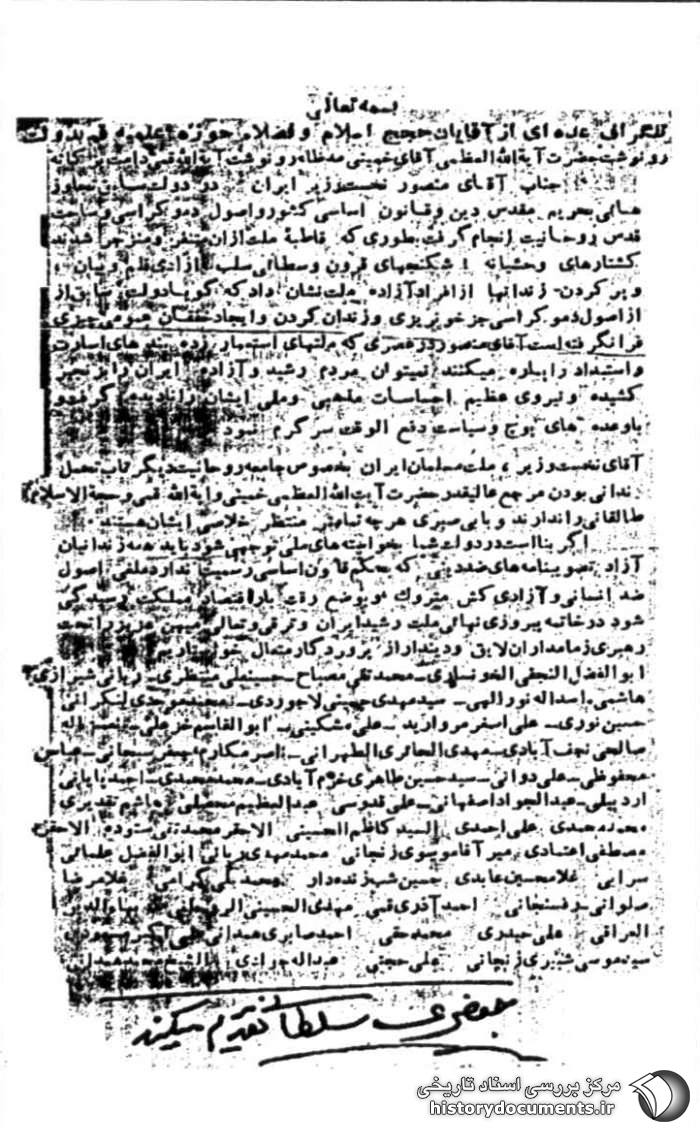 بسمه تعالی
تلگرافی عده ای از آقایان حجج اسلام و فضلاء حوزه علمیه قم بدولت
رونوشت حضرت آیة الله العظمی آقای خمینی مدظله رونوشت آیة الله قمی دامت برکاته
جناب آقای منصور نخست وزیر ایران در دولت سابق تجاوز
هائی بحریم مقدس دین و قانون اساسی کشور و اصول دموکراسی و ساحت
قدس روحانیت انجام گرفت بطوری که قاطبهٔ ملت ازان متنفر و منزجر شدند
کشتارهای وحشیانه ، شکنجهای قرون وسطائی سلب آزادی قلم و بیان ،
و پر کردن زندانها از افراد آزاده ملت نشان داد که گویا دولت سابق از
از اصول دموکراسی جز خونریزی و زندان کردن و ایجاد خفقان عمومی چیزی
فرا نگرفته است آقای منصور در عصری که ملتهای استعمار زده بند های اسارت
و استبداد را پاره میکنند نمیتوان مردم رشید و آزاده ایران را بزنجیر
کشیده و نیروی عظیم احساسات مذهبی و ملی ایشان را نادیده گرفت و
باوعده های پوچ و سیاست دفع الوقت سرگرم نمود
آقای نخست وزیر ، ملت مسلمان ایران بخصوص جامعه روحانیت دیگر تاب تحمل
زندانی بودن مرجع عالیقدر حضرت آیت الله العظمی خمینی و آیة الله قمی و حجة الاسلام
طالقانی را ندارند و با بی صبری هر چه تمامتر منتظر خلاصی ایشان هستند .
اگر بنا است در دولت شما بخواسته های ملی توجهی شود باید همه زندانیان
آزاد تصویبنامه های ضد دینی که بحکم قانون اساسی رسمیت ندارد ملغی اصول
ضد انسانی و آزادی کش متروک و بوضع رقت بار اقتصاد مملکت رسیدگی
شود در خاتمه پیروزی نهائی ملت رشید ایران و ترقی و تعالی میهن عزیز را تحت
رهبری زمامداران لایق و دیندار از پروردگار متعال خواستاریم
ابوالفضل النجفی الخونساری - محمد تقی مصباح - حسینعلی منتظری - ربانی شیرازی
هاشمی - اسداله نورالهی - سید مهدی حسینی لاجوردی - محمد موحدی لنکرانی
حسین نوری - علی اصغر مروارید - علی مشکینی - ابوالقاسم خزعلی - نعمت اله
صالحی نجف آبادی - مهدی الحائری الطهرانی - ناصر مکارم - جعفر سبحانی - عباس
محفوظی - علی دوانی - سید حسین طاهری خرم آبادی - محمد محمدی - احمد پایانی
اردبیلی - عبدالجواد اصفهانی - علی قدوسی عبدالعظیم محصلی هاشم تقدیری
محمد محمدی علی احمدی السید کاظم الحسینی الاحقر محمدتقی ستوده الاحقر
مصطفی اعتمادی میر آقا موسوی زنجانی محمد مهدی ربانی ابوالفضل علمائی
سرابی غلامحسین عابدی حسین شب زنده دار محمدعلی گرامی غلامرضا
صلواتی رفسنجانی احمد آذری قمی مهدی الحسینی الروحانی بهاءالدین
العراقی علی حیدری محمد حقی احمد صابری همدانی علی اکبر مسعودی
سید موسی شبیری زنجانی علی حجتی عبداله جوادی الشیخ محمد
جعفری سلطا تقدیم میکند
مرکز بررسی اسناد تاریخی
historydocuments.ir